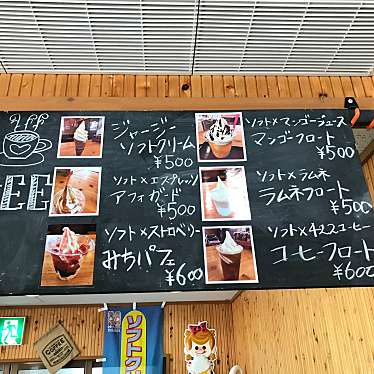 EE
ジャージー
ソフトクリーム
¥500
ソフト×エスプレッソ
アフォガード
¥500
ソフト×ストロベリー
みちパフェ
¥600
ソフト×マンゴージュース
マンゴーフロート
¥500
ソフト×ラムネ
ラムネフロート
¥500
コーヒーフロート
¥600
ソフトク